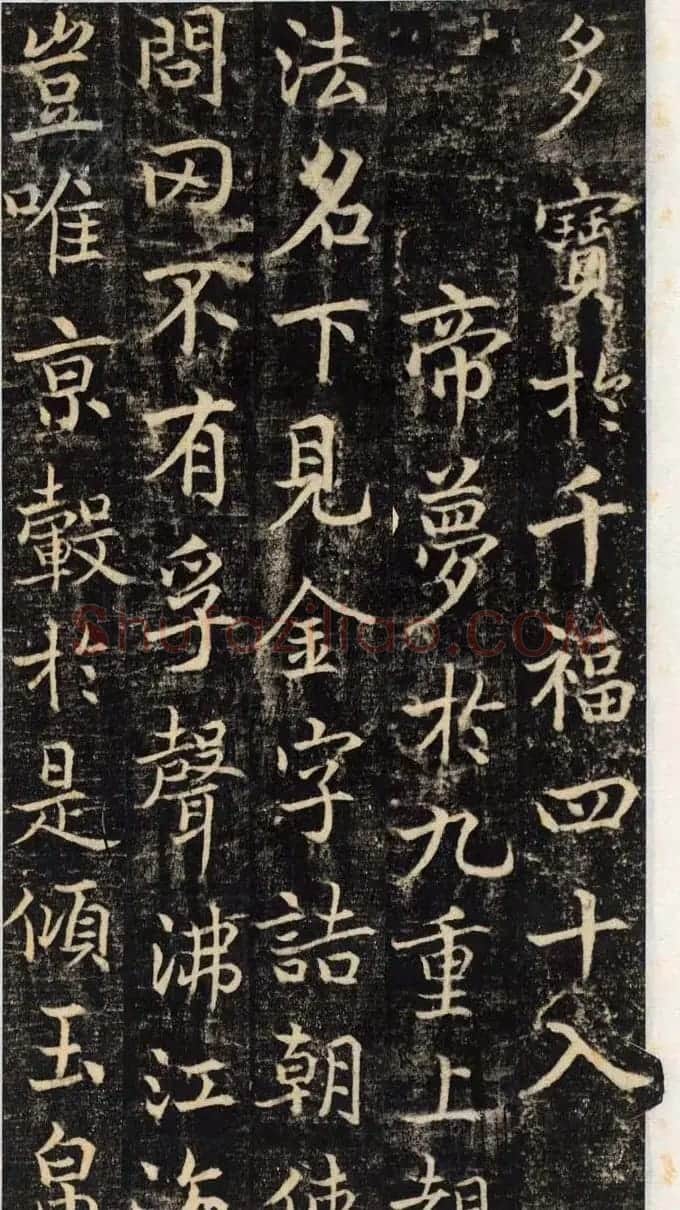 多寶於千福四十入
帝夢於九重上覩
法名下見金字詰朝使
問罔不有孚聲沸江海
豈唯京轂於是傾玉帛
Shufaziliao.COM